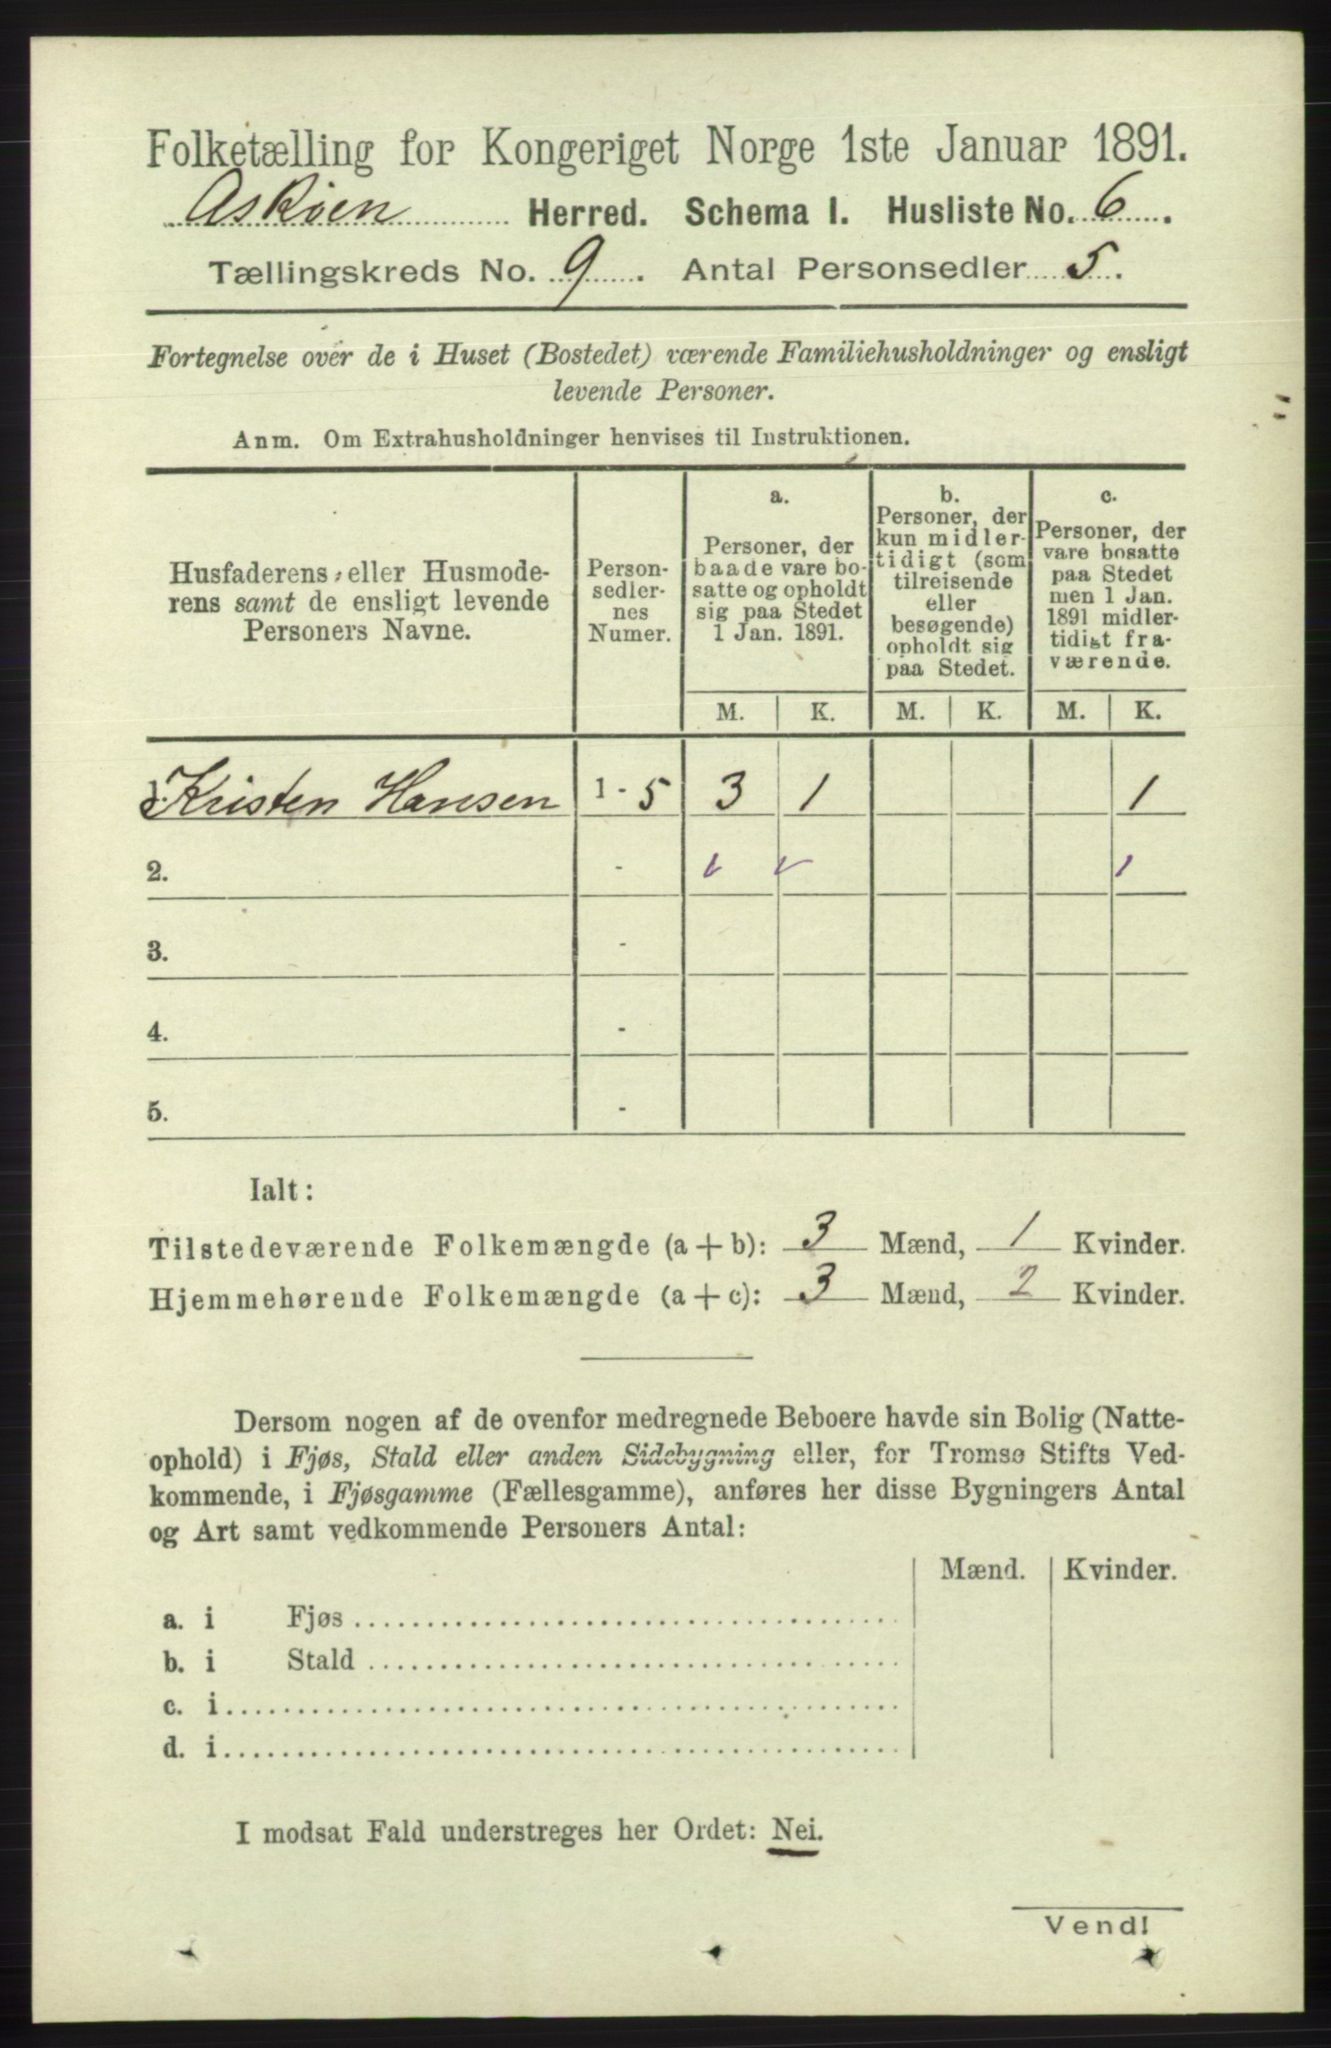 Folketælling for Kongeriget Norge 1ste Januar 1891.
Askøen Herred. Schema I. Husliste No. 6.
Tællingskreds No. 9. Antal Personsedler 5.
Fortegnelse over de i Huset (Bostedet) værende Familiehusholdninger og ensligt
levende Personer.
Anm. Om Extrahusholdninger henvises til Instruktionen.
Husfaderens eller Husmode-
rens samt de ensligt levende
Personers Navne.
Person-
sedler-
nes
Numer.
a.
Personer, der
baade vare bo-
satte og opholdt
sig paa Stedet
1 Jan. 1891.
b.
Personer, der
kun midler-
tidigt (som
tilreisende
eller
besøgende)
opholdt sig
paa Stedet.
c.
Personer, der
vare bosatte
paa Stedet
men 1 Jan.
1891 midler-
tidigt fra-
værende.
M. K. M. K. M. K.
1. Kristen Hansen 1 - 5 3 1 1
2. -
3. -
4. -
5. -
Ialt:
Tilstedeværende Folkemængde (a + b): 3 Mænd, 1 Kvinder.
Hjemmehørende Folkemængde (a + c): 3 Mænd, 2 Kvinder.
Dersom nogen af de ovenfor medregnede Beboere havde sin Bolig (Natte-
ophold) i Fjøs, Stald eller anden Sidebygning eller, for Tromsø Stifts Ved-
kommende, i Fjøsgamme (Fællesgamme), anføres her disse Bygningers Antal
og Art samt vedkommende Personers Antal:
Mænd. Kvinder.
a. i Fjøs
b. i Stald
c. i
d. i
I modsat Fald understreges her Ordet: Nei.
Vend!